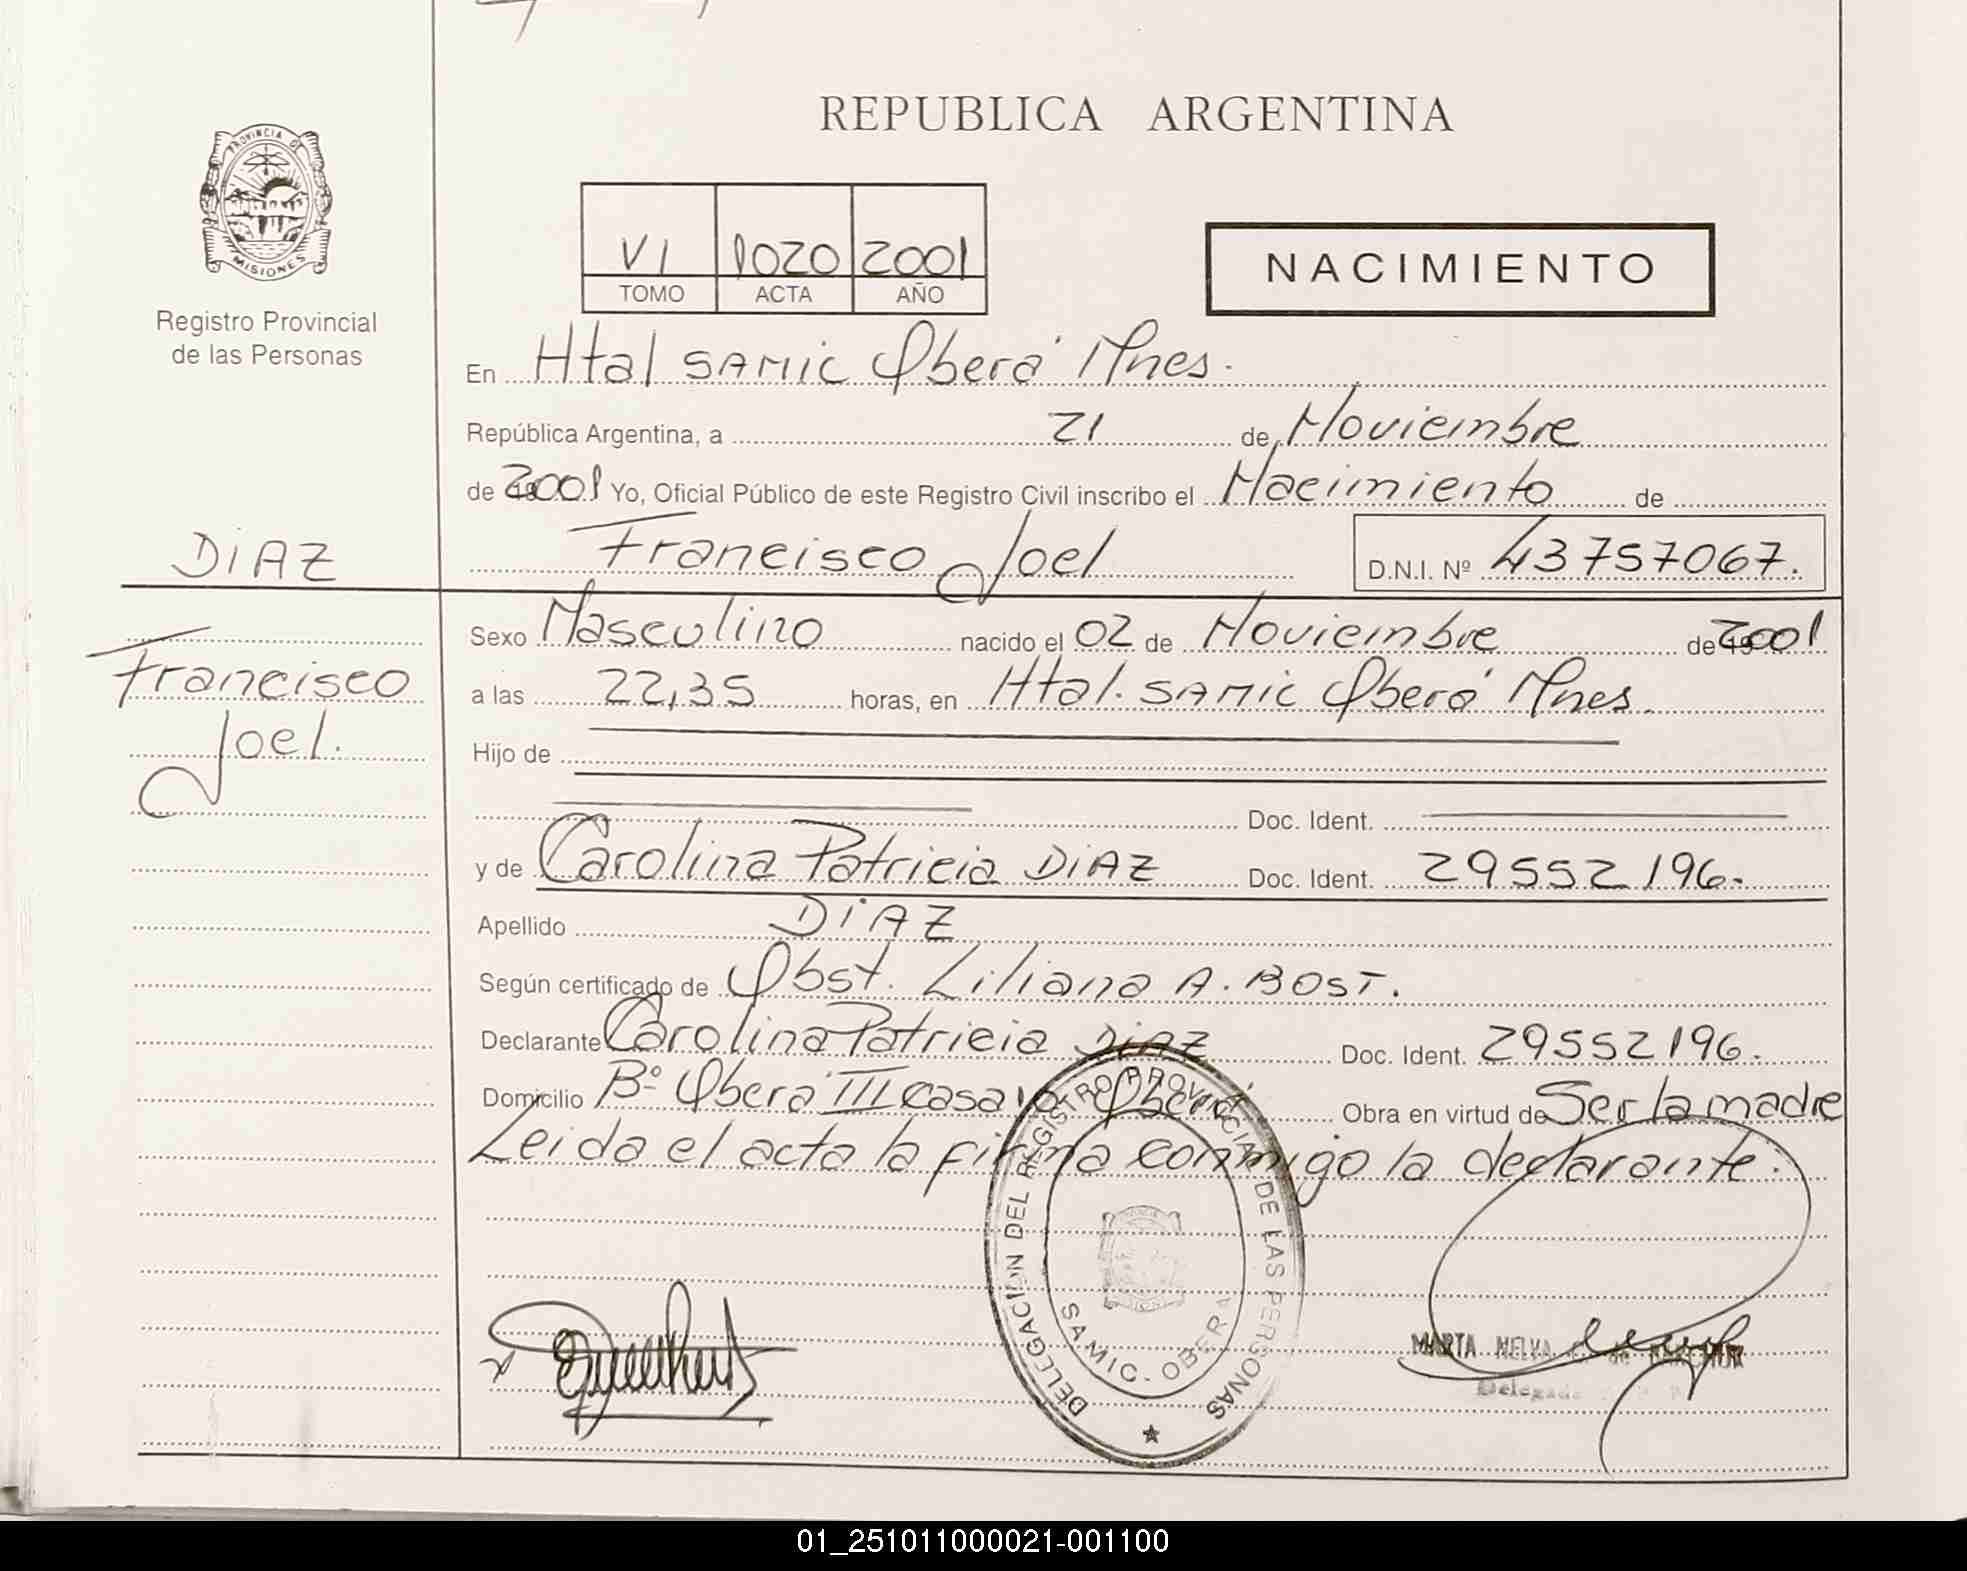 REPUBLICA ARGENTINA
PROVINCIA DE MISIONES
Registro Provincial
de las Personas
VI 1020 2001
TOMO ACTA AÑO
NACIMIENTO
En Htal SAMIC Oberá Mnes.
República Argentina, a 21 de Noviembre
de 2001 Yo, Oficial Público de este Registro Civil inscribo el Nacimiento de
DiAZ
Francisco Joel D.N.I. Nº 43757067.
Francisco
Joel.
Sexo Masculino nacido el 02 de Noviembre de 2001
a las 22,35 horas, en Htal. SAMIC Oberá Mnes.
Hijo de
Doc. Ident.
y de Carolina Patricia DiAZ Doc. Ident. 29552196.
Apellido DiAZ
Según certificado de Obst. Liliana A. BOST.
Declarante Carolina Patricia DiAZ Doc. Ident. 29552196.
Domicilio Bº Oberá III casa Oberá Obra en virtud de Ser la madre
Leida el acta la firma conmigo la declarante.
DELEGACION DEL REGISTRO PROVINCIAL DE LAS PERSONAS
SAMIC - OBERA
MARTA NELVA de
Delegada
01_251011000021-001100